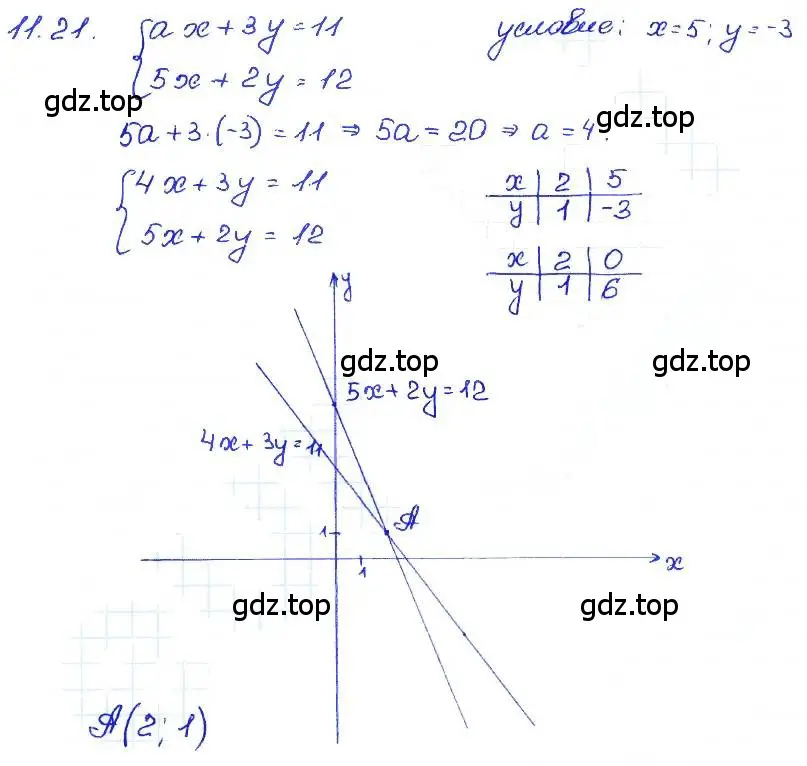 11.21. { ax + 3y = 11 условие: x=5; y=-3
{ 5x + 2y = 12
gdz.top
gdz.top
5a + 3·(-3) = 11 ⇒ 5a = 20 ⇒ a = 4.
{ 4x + 3y = 11
{ 5x + 2y = 12
x | 2 | 5
y | 1 | -3
x | 2 | 0
y | 1 | 6
y
gdz.top
gdz.top
5x + 2y = 12
4x + 3y = 11
A
1
1
x
gdz.top
gdz.top
A(2; 1)